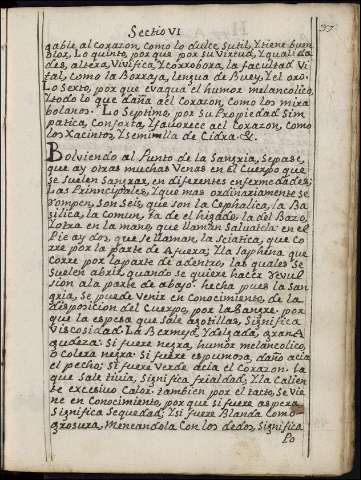 Sectio VI
37
gable al corazon, como lo dulce, Sutil, Y tiene buen
olor. Lo quinto, por que por su Virtud, Y qualida
des, altera, Vivifica, Y corrobora, la facultad Vi
tal, como la Borraja, lengua de Buey, Y el oro.
Lo Sexto, por que evaqua el humor melancolico,
Y todo lo que daña aēl corazon, Como los mira
bolanos. Lo Septimo, por su Propiedad Sim
patica, Conforta, Y favorece aēl Corazon, como
los Xacintos, Y semimilla de Cidra. &.
Bolviendo al Punto de la Sangria, Sepase
que ay otras muchas Venas en el Cuerpo que
se suelen Sangrar, en diferentes enfermedades;
Las Prinncipales, Y que mas ordinariamente se
rompen, son Seis, que son la Cephalica, la Ba
silica, la Comun, la de el higado, la del Bazo,
Y otra en la mano, que llaman Salvatela: en el
Pie ay dos, que se llaman, la Sciatica, que co
rre por la parte de Afuera; Y la Saphena que
corre por la parte de adentro, las quales Se
Suelen abrir, quando se quiere hacer revul
sion a la parte de abajo. hecha pues la san
gria, se puede Venir en Conocimiento, de la
disposicion del Cuerpo, por la Sangre. por
que la espesa que Sale agotillas, Significa
Viscosidad. La Bermeja Y delgada, grande
gudeza: Si fuere negra, humor melancolico,
o colera negra. Si fuere espumosa, daño acia
el pecho; Si fuere Verde acia el corazon. La
que Sale tivia, Significa frialdad, Y la Calien
te excesivo Calor. tambien por el tacto, Se Vie
ne en Conocimiento, por que si fuere aspera
Significa Sequedad, Y si fuere Blanda Como
grosura, Meneandola Con los dedos, Significa
Po